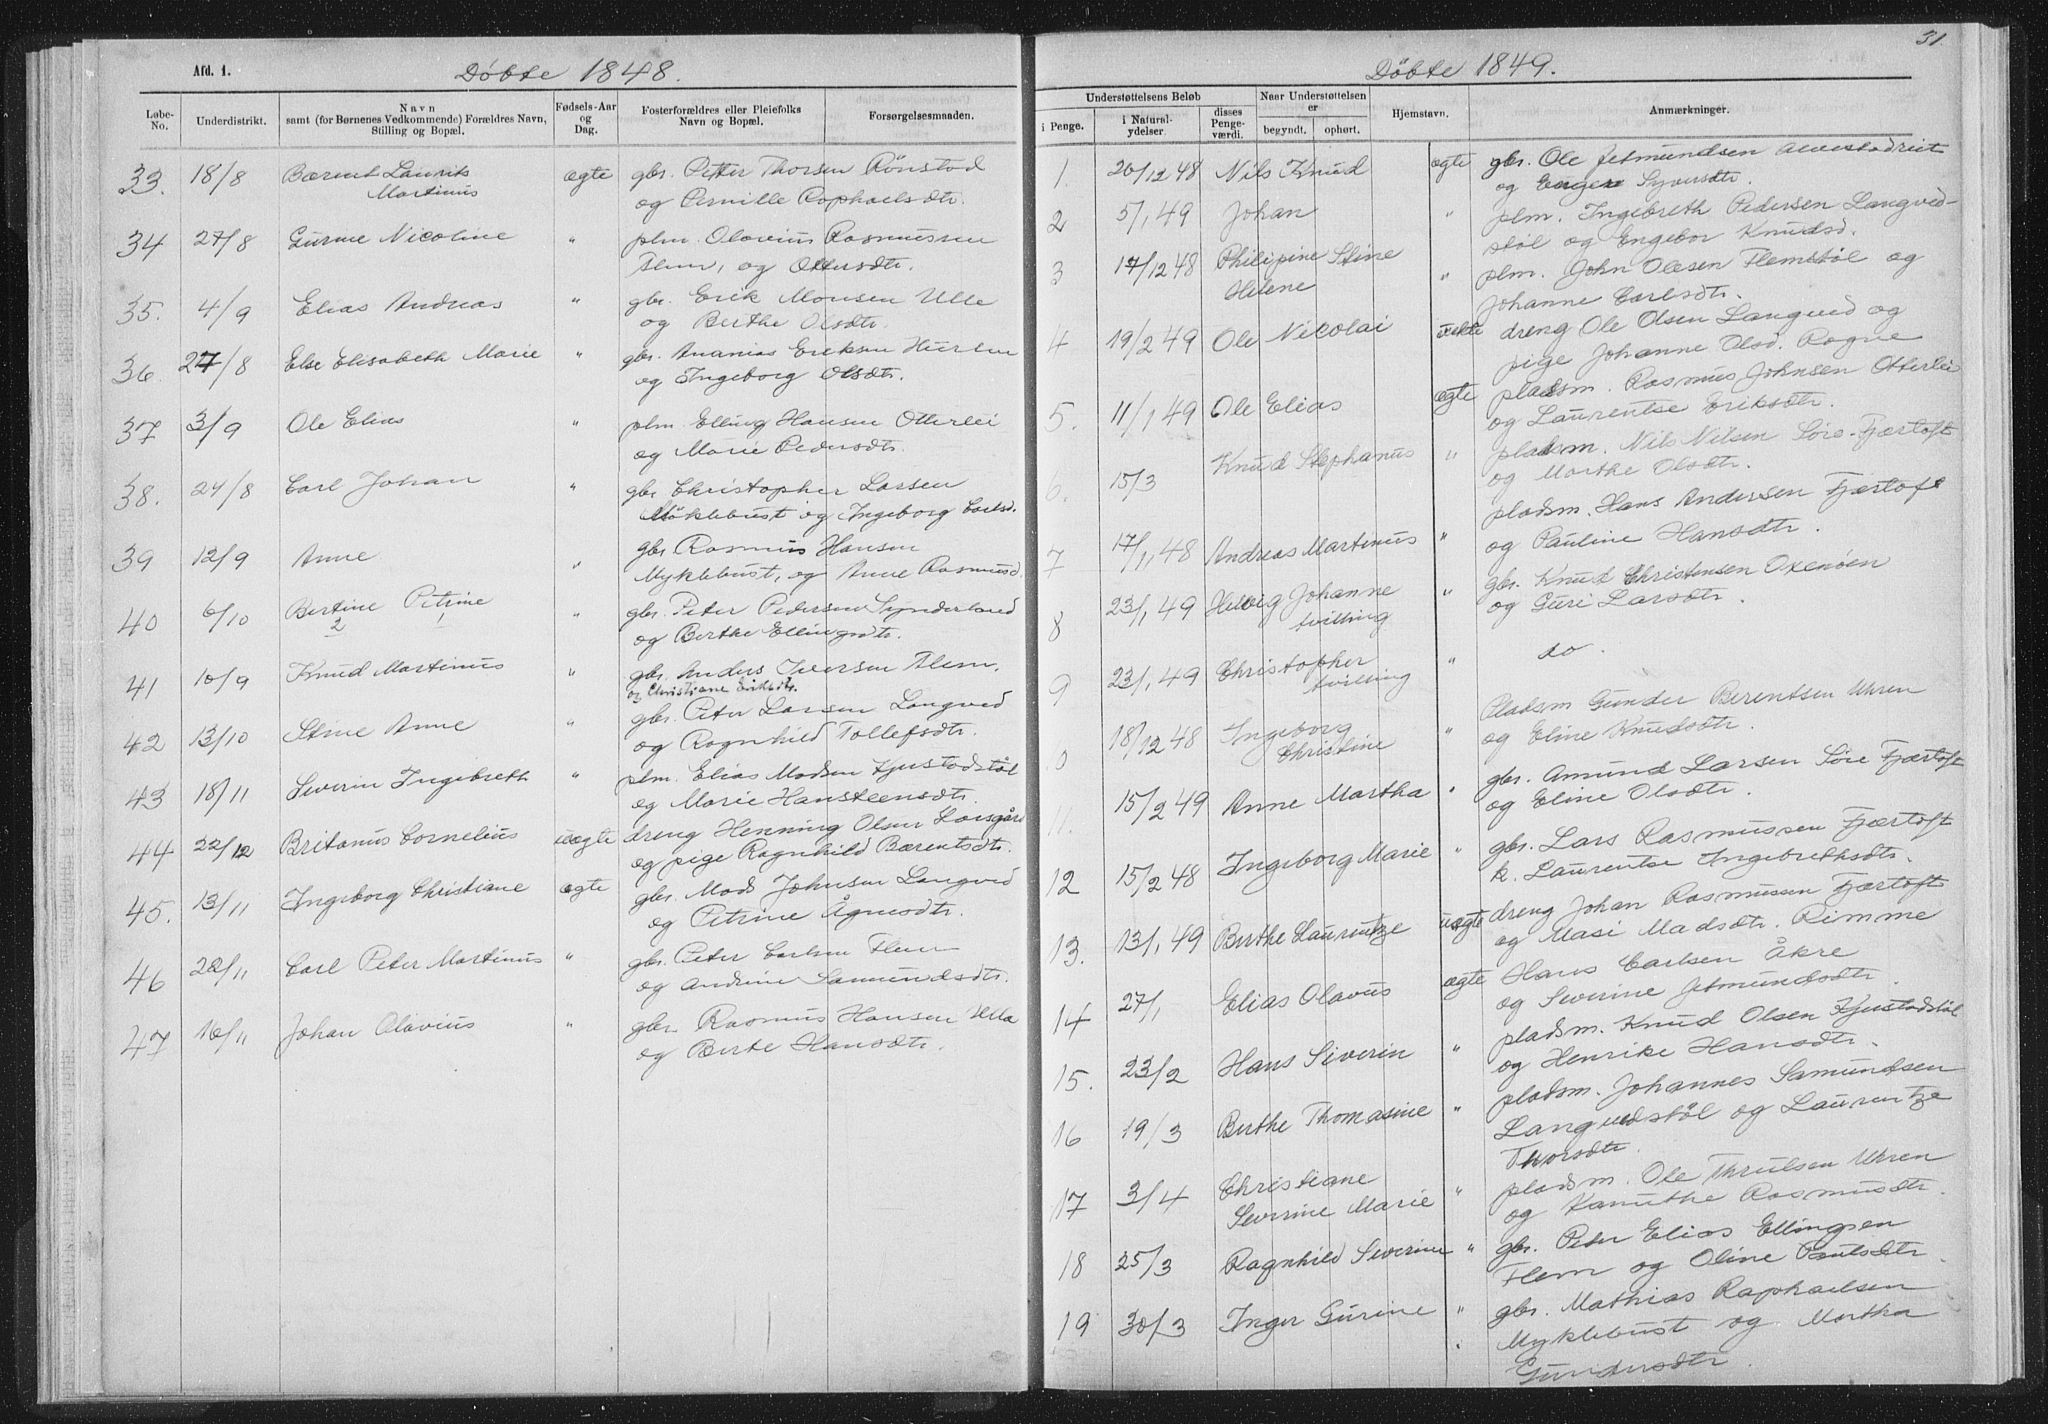 Afd. 1.
Döbte 1848.
Løbe-No. Underdistrikt. Navn samt (for Børnenes Vedkommende) Forældres Navn, Stilling og Bopæl. Fødsels-Aar og Dag. Fosterforældres eller Pleiefolks Navn og Bopæl. Forsørgelsesmaaden.
33. 18/8 Bærent Laurits ægte gbr. Petter Thorsen Rönstad
Martinus og Pernille Raphaelsdtr.
34 27/8 Gurine Nicoline " plm. Olavius Rasmussen
Flem, og Ottersdtr.
35. 4/9 Elias Andreas " gbr. Erik Monsen Ulle
og Berthe Olsdtr.
36. 27/8 Else Elisabeth Marie " gbr. Ananias Eriksen Huse
og Ingeborg Olsdtr.
37 3/9 Ole Elias " plm Elling Hansen Otterlei
og Marie Pedersdtr.
38. 24/8 Carl Johan " gbr Christopher Larsen
Möklebust og Ingeborg Carlsd.
39 12/9 Anne " gbr. Rasmus Hansen
Myklebust, og Anne Rasmusd.
40 6/10 Bertine Petrine " gbr. Peter Pedersen Synderland
2 1 og Berthe Ellingsdtr.
41 10/9 Knud Martinus " gbr. Anders Iversen Flem.
og Christiane Eriksdtr.
42 13/10 Stine Anne " gbr. Peter Larsen Langved
og Ragnhild Tollefsdtr.
43 18/11 Severin Ingebreth " plm. Elias Madsen Kjustadstöl
og Marie Hansteensdtr.
44 22/12 Britanus Cornelius uægte dreng Henning Olsen Haisgård
og pige Ragnhild Bærentsdtr.
45. 13/11 Ingeborg Christiane ægte gbr. Mads Johnsen Langved
og Petrine Ågmodtr.
46 22/11 Carl Peter Martinus " gbr. Peter Carlsen Flem
og Andrine Samundsdtr.
47 16/11 Johan Olavius " gbr. Rasmus Hansen Ulla
og Berte Hansdtr.
31
Döbte 1849.
Understøttelsens Beløb i Penge. i Natural-ydelser. disses Penge-værdi. Naar Understøttelsen er begyndt. ophørt. Hjemstavn. Anmærkninger.
1. 20/12 48 Nils Knud ægte gbr. Ole Jetmundsen Alvestadreit
og Syversdtr.
2 5/1 49 Johan " plm. Ingebreth Pedersen Langved-
stöl og Engebor Knudsd.
3 17/12 48 Philipine Stine " plm. John Olesen Flemstöl og
Helene Johanne Carlsdtr.
4 19/2 49 Ole Nicolai uekte dreng Ole Olsen Langved og
pige Johanne Olsd. Rogne
5. 11/1 49 Ole Elias ægte pladsm. Rasmus Johnsen Otterlei
og Laurentse Eriksdtr.
6. 15/3 Knud Stephanus " pladsm. Nils Nilsen Söre-Fjærtoft
og Marthe Olsdtr.
7 17/1 48 Andreas Martinus " pladsm. Hans Andersen Fjærtoft
og Pauline Hansdtr.
8 23/1 49 Helvig Johanne " gbr. Knud Christensen Oxenöen
tvilling og Guri Larsdtr.
9 23/1 49 Christopher " do.
tvilling
0 18/12 48 Ingeborg " Pladsm Gunder Berentsen Uhren
Christine og Eline Knudsdtr.
11. 15/2 49 Anne Martha " gbr. Amund Larsen Söre Fjærtoft
og Eline Olsdtr.
12 15/2 48 Ingeborg Marie " gbr. Lars Rasmussen Fjærtoft
k. Laurentse Ingebrethsdtr.
13. 13/1 49 Berthe Laurentze uægte dreng Johan Rasmussen Fjærtoft
og Masi Madsdtr. Rimme
14 27/1 Elias Olavus ægte Hans Carlsen Åkre
og Severine Jetmundsdtr.
15. 23/2 Hans Siverin " pladsm. Knud Olsen Kjustadstöl
og Henrike Hansdtr.
16 19/3 Berthe Thomasine " pladsm. Johannes Samundsen
Langvedstöl og Laurentze
Thorsdtr.
17 3/4 Christiane " pladsm. Ole Thrulsen Uhren
Severine Marie og Kanuthe Rasmusdtr.
18 25/3 Ragnhild Severine " gbr. Peter Elias Ellingsen
Flem og Oline Paulsdtr.
19 30/3 Inger Gurine " gbr. Mathias Raphaelsen
Myklebust og Martha
Gundersdtr.